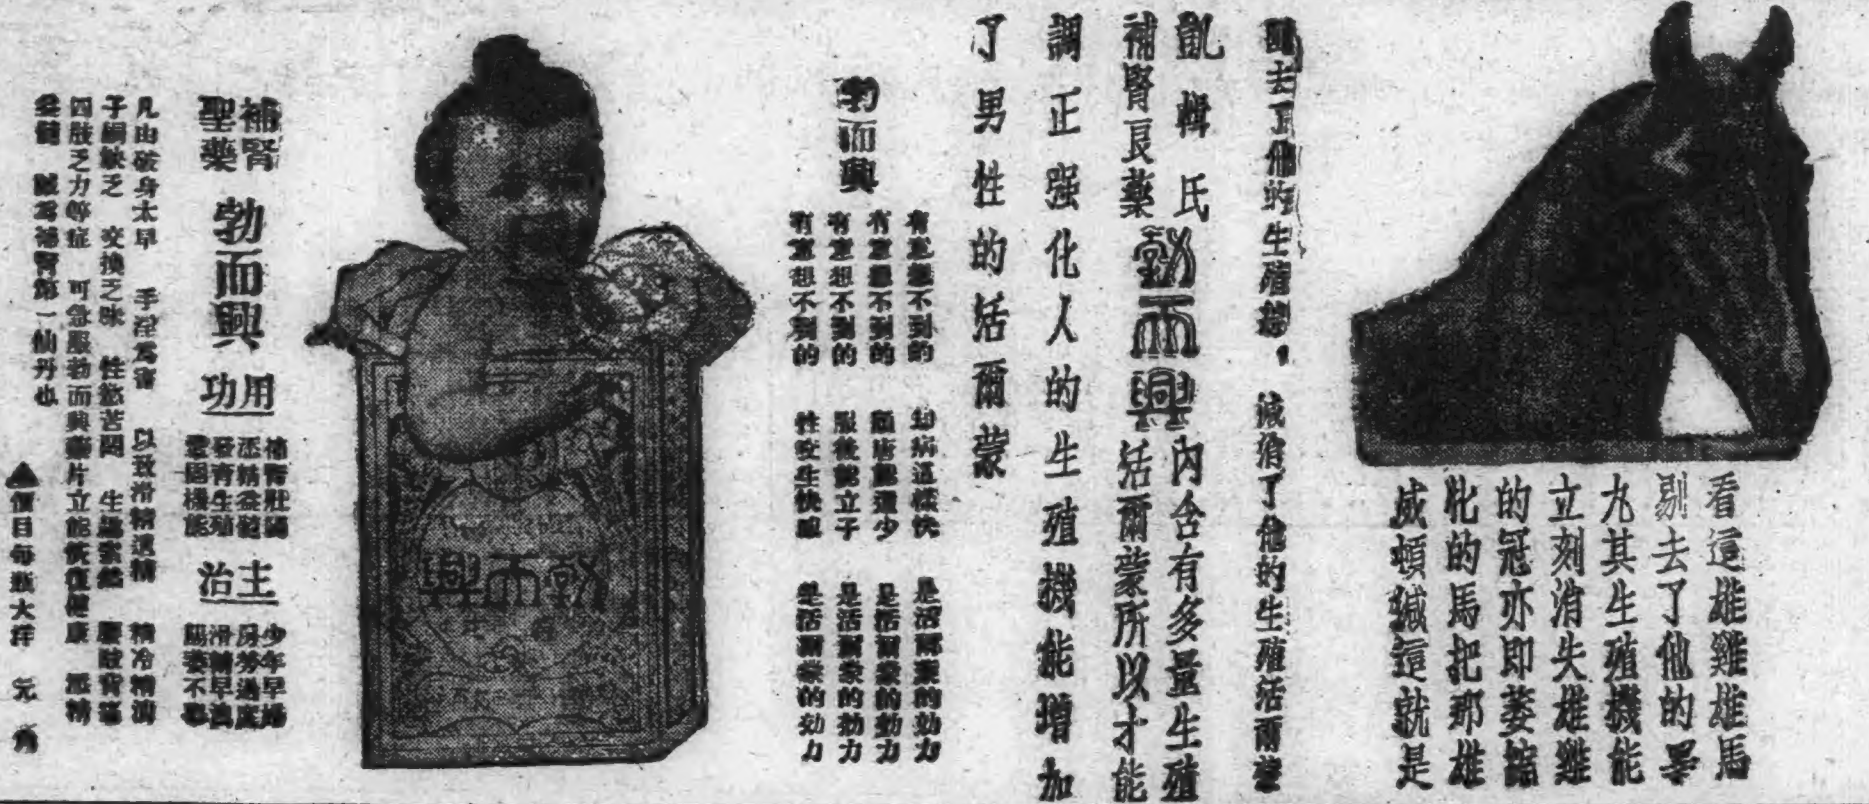 看這雄雞雄馬
剔去了他的睪
九其生殖機能
立刻消失雄雞
的冠亦即萎縮
牝的馬把那雄
威頓緘這就是
去了他的生殖，減消了他的生殖活爾蒙
凱輯氏
補腎良藥
勃而興
內含有多量生殖
活爾蒙所以才能
調正强化人的生殖機能增加
了男性的活爾蒙
勃而興
有意想不到的 治病這樣快 是活爾蒙的効力
有意想不到的 能還少 是活爾蒙的効力
有意想不到的 服後能立子 是活爾蒙的効力
有意想不到的 性交生快感 是活爾蒙的効力
勃而興
補腎
聖藥
勃而興
功用
補腎壯陽
添精益髓
發育生殖
鞏固機能
主治
少年早婚
房勞過度
滑精早洩
陽萎不舉
凡由破身太早 手淫為害 以致滑精遺精 精冷精清
子嗣缺乏 交換乏味 性慾苦悶 索然 腰酸背痛
四肢乏力等症 可急服勃而興藥片立能恢復健康 精
髓 誠為補腎第一仙丹也
▲價目每瓶大洋 元 角